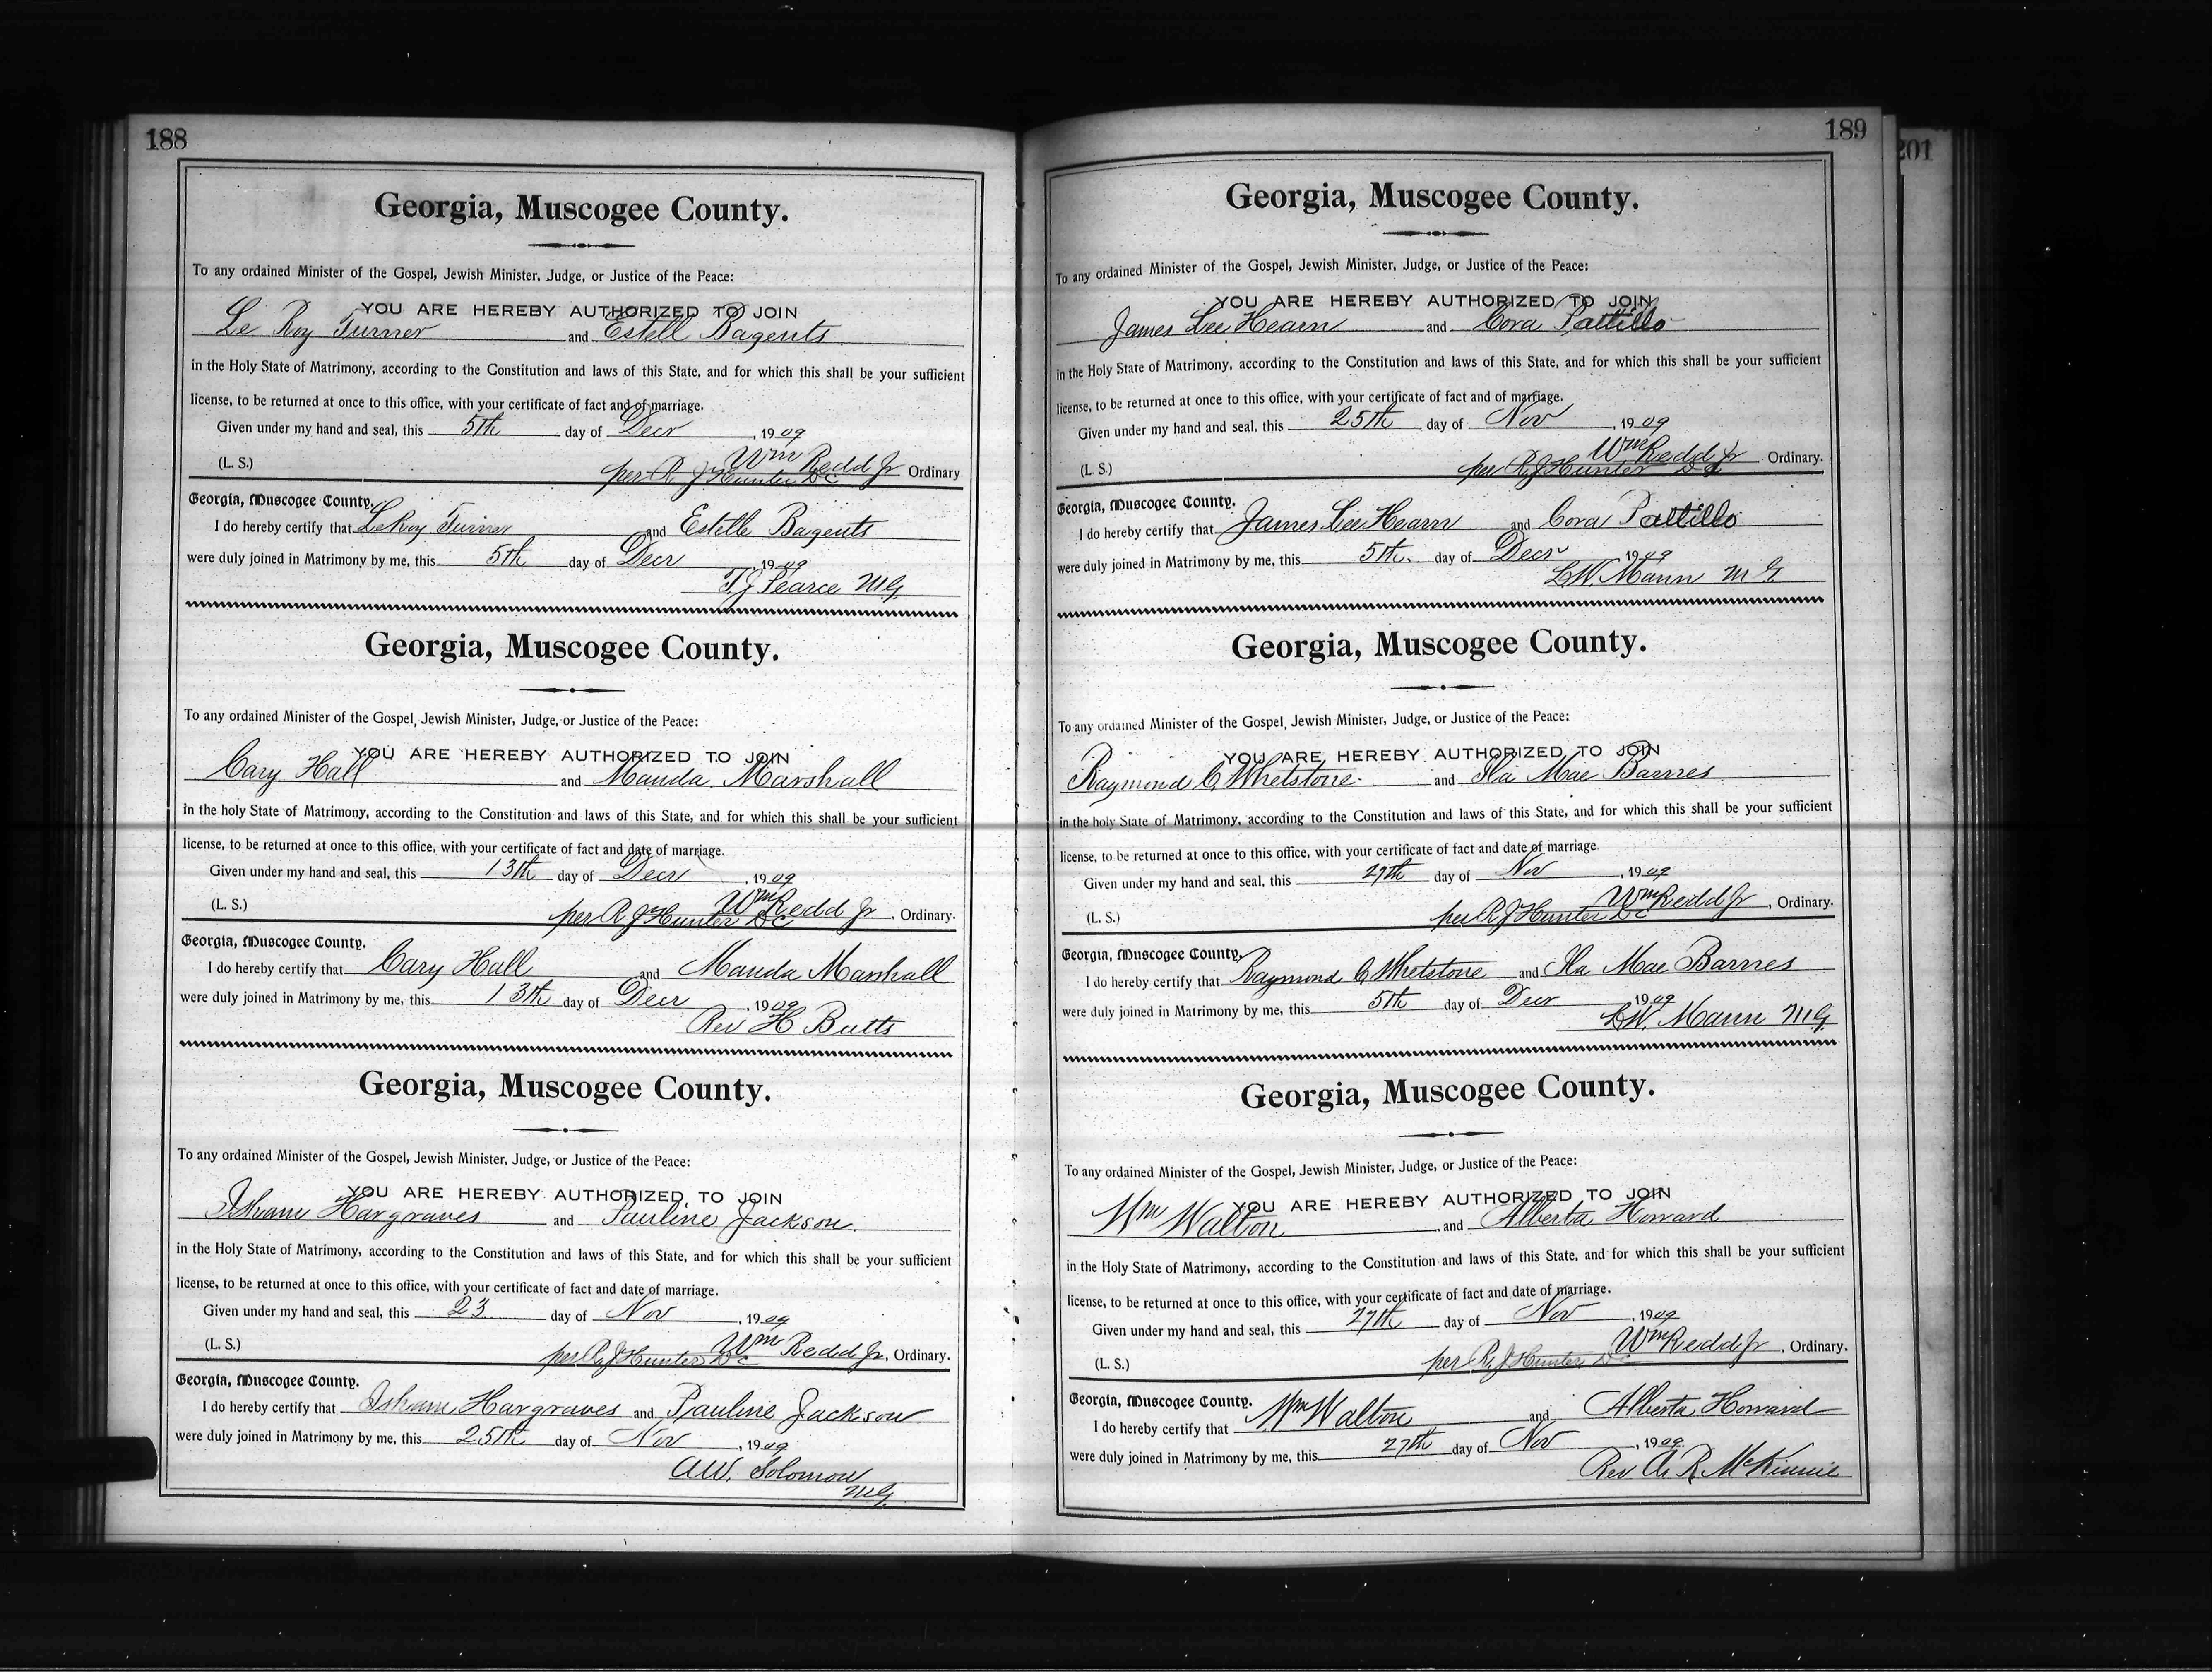 188
Georgia, Muscogee County.
To any ordained Minister of the Gospel, Jewish Minister, Judge, or Justice of the Peace:
YOU ARE HEREBY AUTHORIZED TO JOIN
Le Roy Turner and Estell Bagents
in the Holy State of Matrimony, according to the Constitution and laws of this State, and for which this shall be your sufficient
license, to be returned at once to this office, with your certificate of fact and of marriage.
Given under my hand and seal, this 5th day of Decr, 1909
(L. S.) Wm Redd Jr Ordinary
per R J Hunter DC
Georgia, Muscogee County.
I do hereby certify that LeRoy Turner and Estelle Bagents
were duly joined in Matrimony by me, this 5th day of Decr, 1909
T. J Pearce M.G.
Georgia, Muscogee County.
To any ordained Minister of the Gospel, Jewish Minister, Judge, or Justice of the Peace:
YOU ARE HEREBY AUTHORIZED TO JOIN
Cary Hall and Manda Marshall
in the holy State of Matrimony, according to the Constitution and laws of this State, and for which this shall be your sufficient
license, to be returned at once to this office, with your certificate of fact and date of marriage.
Given under my hand and seal, this 13th day of Decr, 1909
(L. S.) Wm Redd Jr, Ordinary.
per R J Hunter DC
Georgia, Muscogee County.
I do hereby certify that Cary Hall and Manda Marshall
were duly joined in Matrimony by me, this 13th day of Decr, 1909
Rev H Butts
Georgia, Muscogee County.
To any ordained Minister of the Gospel, Jewish Minister, Judge, or Justice of the Peace:
YOU ARE HEREBY AUTHORIZED TO JOIN
Isham Hargraves and Pauline Jackson
in the Holy State of Matrimony, according to the Constitution and laws of this State, and for which this shall be your sufficient
license, to be returned at once to this office, with your certificate of fact and date of marriage.
Given under my hand and seal, this 23 day of Nov, 1909
(L. S.) Wm Redd Jr, Ordinary.
per R J Hunter DC
Georgia, Muscogee County.
I do hereby certify that Isham Hargraves and Pauline Jackson
were duly joined in Matrimony by me, this 25th day of Nov, 1909
A.W. Solomon
M.G.
189
201
Georgia, Muscogee County.
To any ordained Minister of the Gospel, Jewish Minister, Judge, or Justice of the Peace:
YOU ARE HEREBY AUTHORIZED TO JOIN
James Lee Hearn and Cora Pattillo
in the Holy State of Matrimony, according to the Constitution and laws of this State, and for which this shall be your sufficient
license, to be returned at once to this office, with your certificate of fact and of marriage.
Given under my hand and seal, this 25th day of Nov, 1909
(L. S.) Wm Redd Jr Ordinary.
per R J Hunter
Georgia, Muscogee County.
I do hereby certify that James Lee Hearn and Cora Pattillo
were duly joined in Matrimony by me, this 5th. day of Decr 1909
L.W. Mann M G.
Georgia, Muscogee County.
To any ordained Minister of the Gospel, Jewish Minister, Judge, or Justice of the Peace:
YOU ARE HEREBY AUTHORIZED TO JOIN
Raymond C. Whetstone and Ila Mae Barnes
in the holy State of Matrimony, according to the Constitution and laws of this State, and for which this shall be your sufficient
license, to be returned at once to this office, with your certificate of fact and date of marriage.
Given under my hand and seal, this 27th day of Nov, 1909
(L. S.) Wm Redd Jr, Ordinary.
per R J Hunter DC
Georgia, Muscogee County.
I do hereby certify that Raymond C Whetstone and Ila Mae Barnes
were duly joined in Matrimony by me, this 5th day of Decr 1909
L.W. Mann M.G.
Georgia, Muscogee County.
To any ordained Minister of the Gospel, Jewish Minister, Judge, or Justice of the Peace:
YOU ARE HEREBY AUTHORIZED TO JOIN
Wm Walton and Alberta Howard
in the Holy State of Matrimony, according to the Constitution and laws of this State, and for which this shall be your sufficient
license, to be returned at once to this office, with your certificate of fact and date of marriage.
Given under my hand and seal, this 27th day of Nov, 1909
(L. S.) Wm Redd Jr, Ordinary.
per R J Hunter DC
Georgia, Muscogee County.
I do hereby certify that Wm Walton and Alberta Howard
were duly joined in Matrimony by me, this 27th day of Nov, 1909
Rev A. R. McKinnie